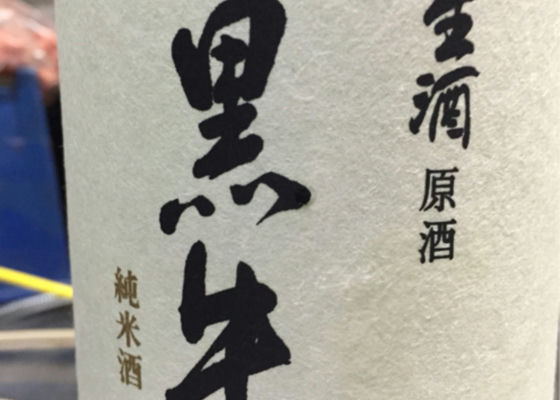 生酒
原酒
黒牛
純米酒